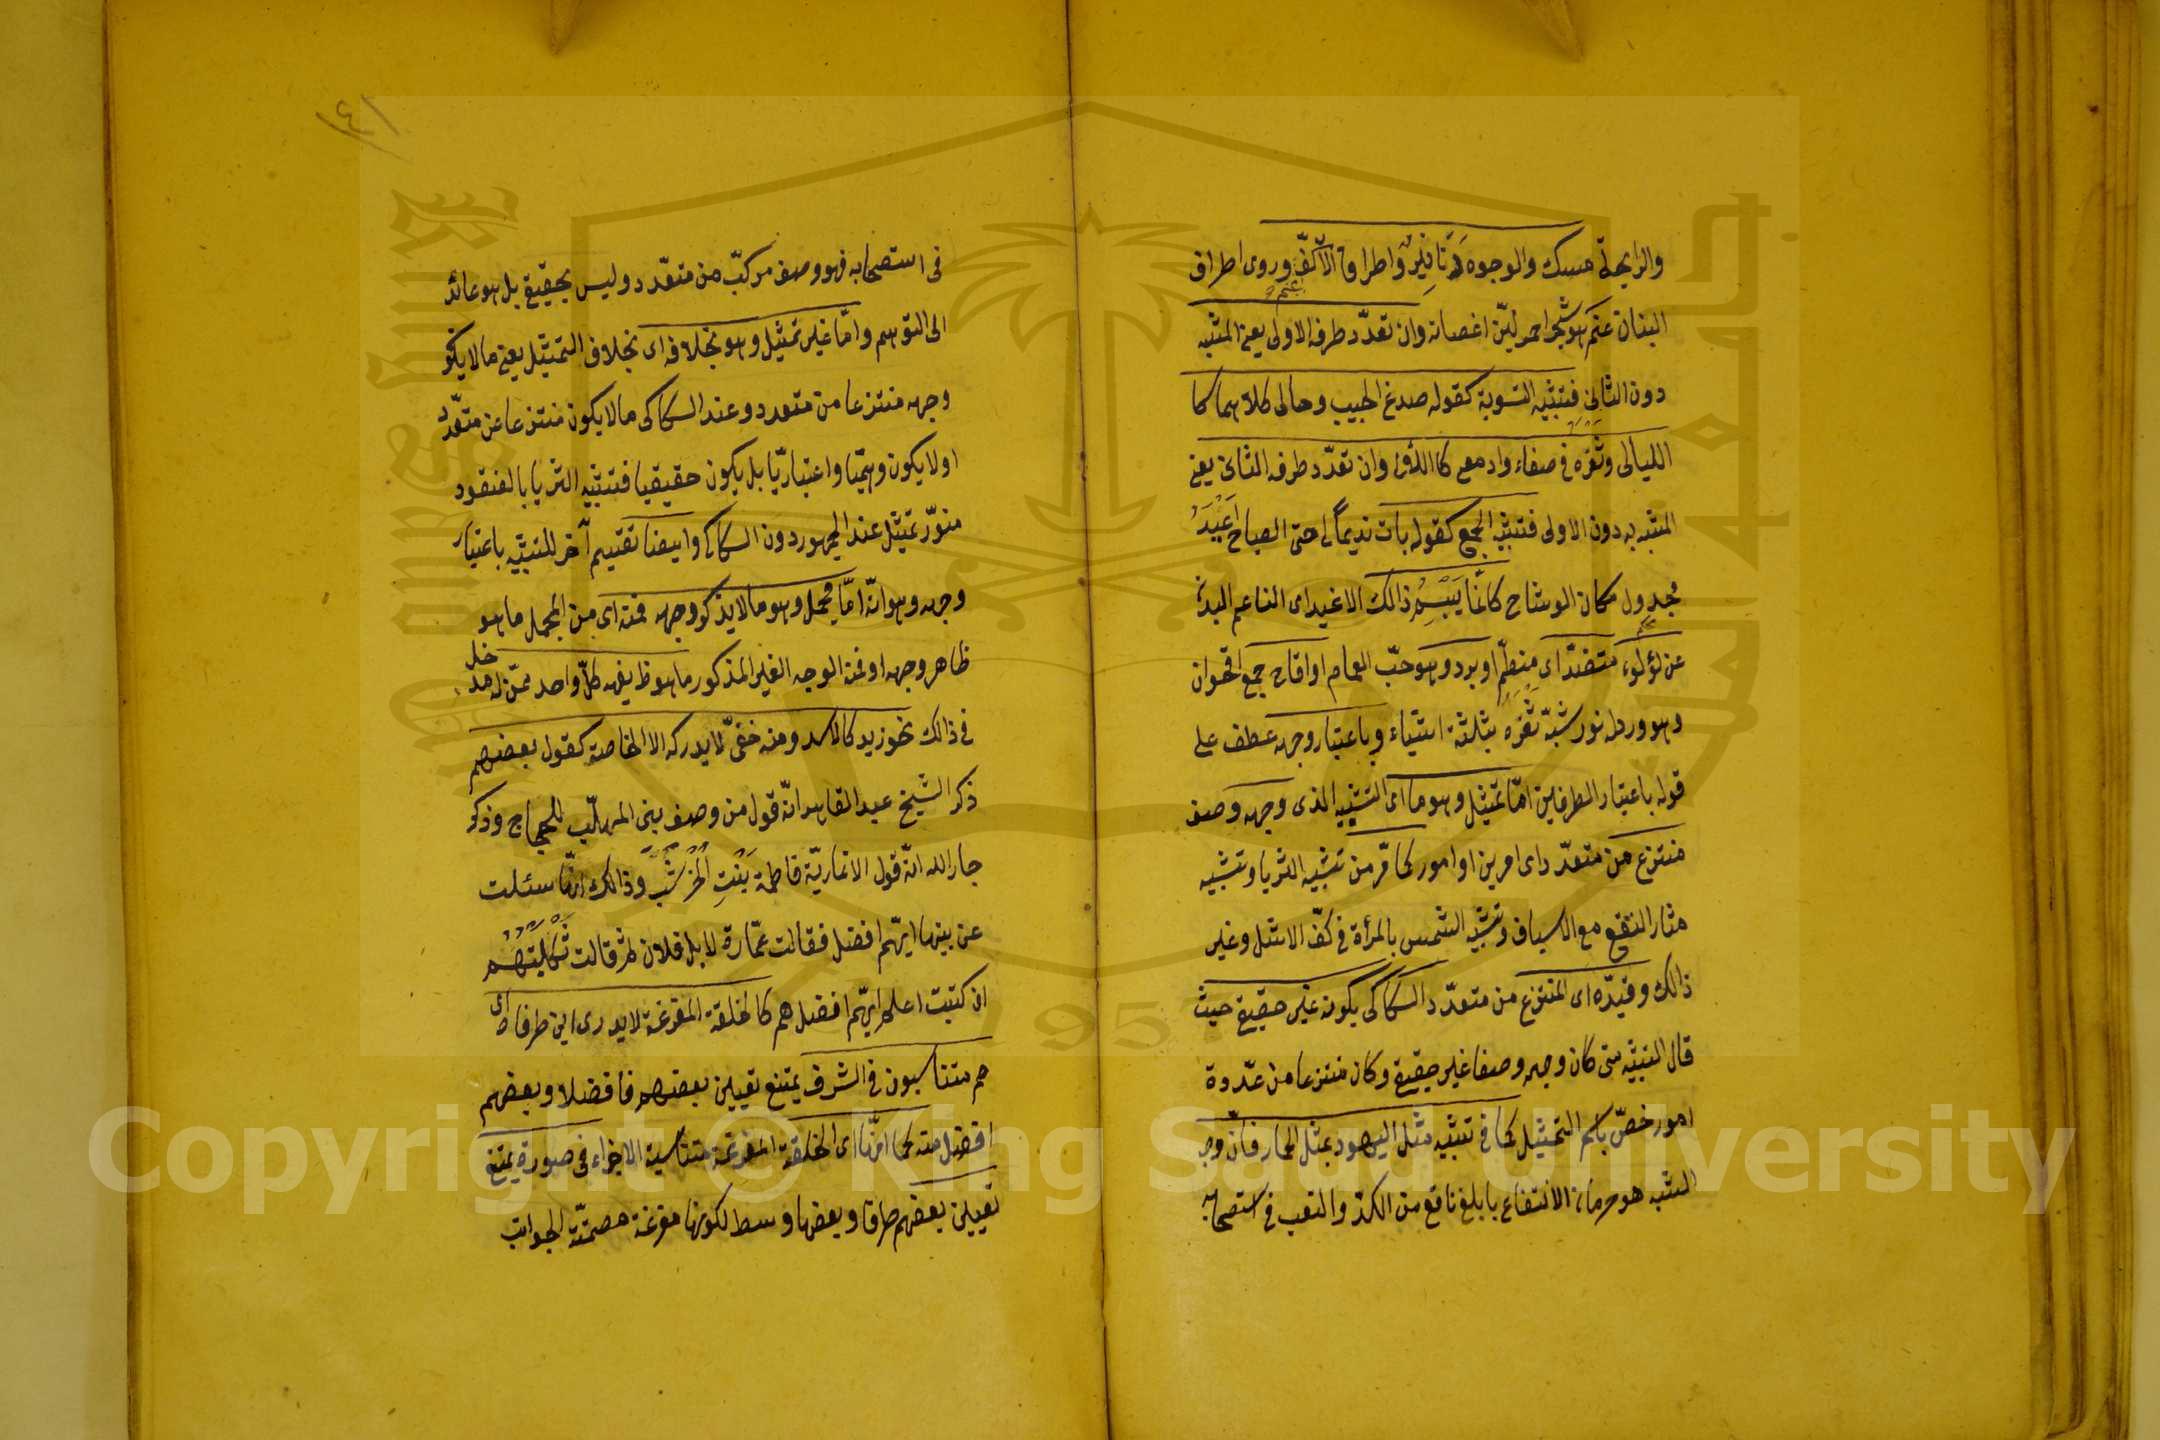 والرايحة مسك والوجوه دَنَانِيرٌ واطراف الاكفّ وروى اطراف
البنان عنم هو شجر احمر ليّن اغصانه وان تعدّد طرفه الاولى يعنى المشبه
دون الثانى فتشبيه التسوية كقوله صدغ الحبيب وحالى كلاهما كا
الليالى وثغره فى صفاء وادمعى كاللألى وان تعدّد طرفه الثانى يعنى
المشبه به دون الاولى فتشبيه الجمع كقوله بات نديماً لى حتى الصباح اغيد
مجدول مكان الوشاح كانما يبسم ذالك الاغيد اى الناعم البدن
عن لؤلوء منضدّ اى منظم او برد وهو حبّ الغمام او اقاح جمع اقحوان
وهو ورد له نور شبّه ثغره بثلثة اشياء وباعتبار وجهه عطف على
قوله باعتبار الطرفين امّا تمثيل وهو ما اى التشبيه الذى وجهه وصف
منتزع من متعدّد اى امرين او امور كما مرّ من تشبيه الثريا وتشبيه
مثار النقع مع الاسياف وتشبيه الشمس بالمرأة فى كفّ الاشل وغير
ذالك وقيدّه اى المنتزع من متعدّد السكاكى بكونه غير حقيقى حيث
قال التشبيه متى كان وجهه وصفا غير حقيقى وكان منتزعا من عدّدة
امور خصّ باسم التمثيل كما فى تشبيه مثل اليهود بمثل الحمار فانّ وجه
الشبه هو حرمان الانتفاع بابلغ نافع من الكدّ والتعب فى استصحابه
فى استصحابه فهو وصف مركبّ من متعّدد وليس بحقيقى بل هو عائد
الى التوهم وامّا غير تمثيل وهو بخلافه اى بخلاف التمثيل يعنى ما لا يكون
وجهه منتزعا من متعدد وعند السكاكى ما لا يكون منتزعا عن متعّدد
او لا يكون وهميّا واعتباريّا بل يكون حقيقيا فتشبيه الثريا بالعنقود
منوّر تمثيل عند الجمهور دون السكاكى وايضا تقسيم آخر للتشبيه باعتبار
وجهه وهو انّه امّا مجمل وهو ما لا يذكر وجهه فمنه اى من المجمل ما هو
ظاهر وجهه او فمن الوجه الغير المذكور ما هو ظ يفهمه كلّ واحد ممّن له مدخل
فى ذالك نحو زيد كالاسد ومنه خفىّ لا يدركه الا الخاصة كقول بعضهم
ذكر الشيخ عبد القاهر انّه قول من وصف بنى المهلّب للحجاج وذكر
جار الله انّه قول الانماريّة فاطمة بنت الخرشب وذالك انّها سئلت
عن بنيها ايّهم افضل فقالت عمّارة لا بل فلان ثم قالت ثكلتهم
ان كنت اعلم ايّهم افضل هم كالحلقة المفرغة لا يدرى اين طرفاها اى
هم متناسبون فى الشرف يمتنع تعيين بعضهم فاضلا وبعضهم
افضل منه كما انّها اى الحلقة المفرغة متناسبة الاجزاء فى صورة يمتنع
تعيين بعضهم طرفا وبعضها وسط لكونها مفرغة مصمتّة الجوانب
Copyright © King Saud University
1957